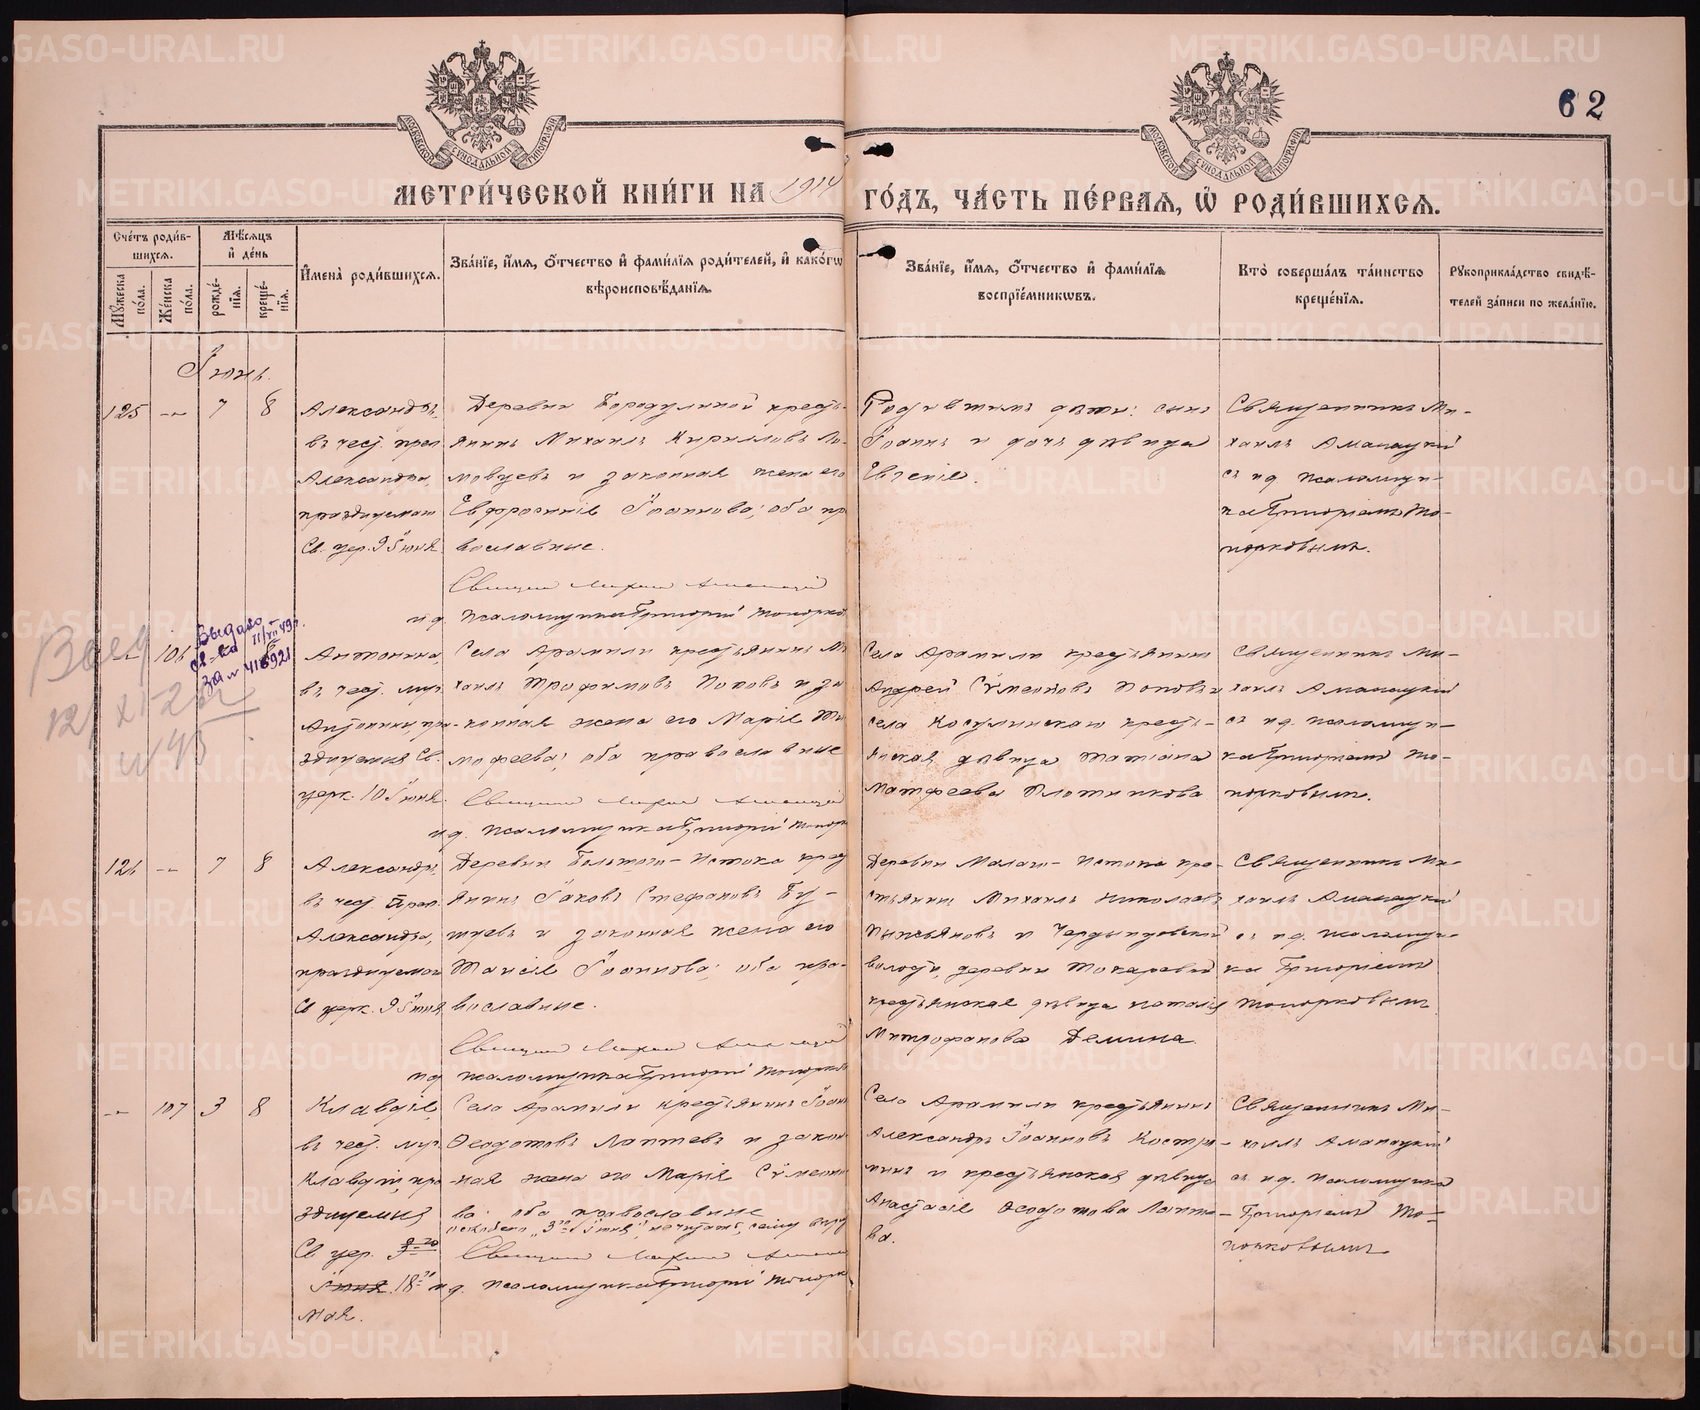 62
МЕТРИ́ЧЕСКОЙ КНИ́ГИ НА 1914 ГО́ДЪ, ЧА́СТЬ ПЕ́РВАЯ, Ѿ РОДИ́ВШИХСЯ.
Сче́тъ роди́в-
шихся.
Мѣ́сяцъ
и де́нь
Му́жеска
по́ла.
Же́нска
по́ла.
рожде́-
нїя.
креще́-
нїя.
Имена̀ роди́вшихся.
Зва́нїе, и́мя, о́тчество и фами́лїя роди́телей, и како́гѡ
вѣроисповѣ́данїя.
Зва́нїе, и́мя, о́тчество и фами́лїя
воспрїе́мникѡвъ.
Кто̀ соверша́лъ та́инство
креще́нїя.
Рукоприкла́дство свидѣ́-
телей за́писи по жела́нїю.
Іюнь.
125 — 7 8
Александръ,
въ чест. преп.
Александра,
празднуемаго
Св. цер. 9 Іюня
Деревни Бородулиной кресть-
янинъ Михаилъ Кирилловъ Ло-
мовцевъ и законная жена его
Евфросинія Іоаннова; оба пр
вославные.
и д. псаломщика Григорій Топорко
Родившимъ дѣти: сынъ
Іоаннъ и дочь дѣвица
Евгенія.
Священникъ Ми-
хаилъ Аманацкій
съ и д. псаломщи-
ка Григоріемъ То-
порковымъ.
— 106
Выдано
св-во 11/VII 49г.
за № 416921
Антонина,
въ чест. муч.
Антонины пра-
зднуемыя Св.
церк. 10 Іюня.
Села Арамили крестьянинъ Ми
хаилъ Трофимовъ Поповъ и за
конная жена его Марія Ти
мофеева; оба православные
и д. псаломщика Григорій Топор
Села Арамили крестьянинъ
Андрей Сѵмеоновъ Поповъ и
села Косулинскаго кресть-
янская дѣвица Татіана
Матфеева Плотникова
Священникъ Ми-
хаилъ Аманацкій
съ и д. псаломщи-
ка Григоріемъ То-
порковымъ.
126 — 7 8
Александръ,
въ чест. Преп.
Александра,
празднуемаго
Св церк. 9 Іюня
Деревни Большого-Истока крест
янинъ Іаковъ Стефановъ Бу-
шуевъ и законная жена его
Таисія Іоаннова; оба пра-
вославные.
и д псаломщика Григорій Топорко
Деревни Малаго-Истока кре-
стьянинъ Михаилъ Николаевъ
и
волости, деревни Токаревой
крестьянская дѣвица Наталія
Митрофанова Демина.
Священникъ Ми-
хаилъ Аманацкій
съ и д. псаломщи-
ка Григоріемъ
Топорковымъ
— 107 3 8
Клавдія,
въ чест. муч.
Клавдіи, пра
зднуемыя
Св. цер.
Іюня. 18
Мая.
Села Арамили крестьянинъ Іоан
Ѳеодотовъ Лаптевъ и закон
ная жена его Марія Сѵмеоно
ва; оба православные
и д. псаломщика Григорій Топорк
Села Арамили крестьянинъ
Александръ Іоанновъ Костро-
минъ и крестьянская дѣвица
Анастасія Ѳеодотова Лапте-
ва.
Священникъ Ми-
хаилъ Аманацкій
съ и д. псаломщика
Григоріемъ То-
порковымъ